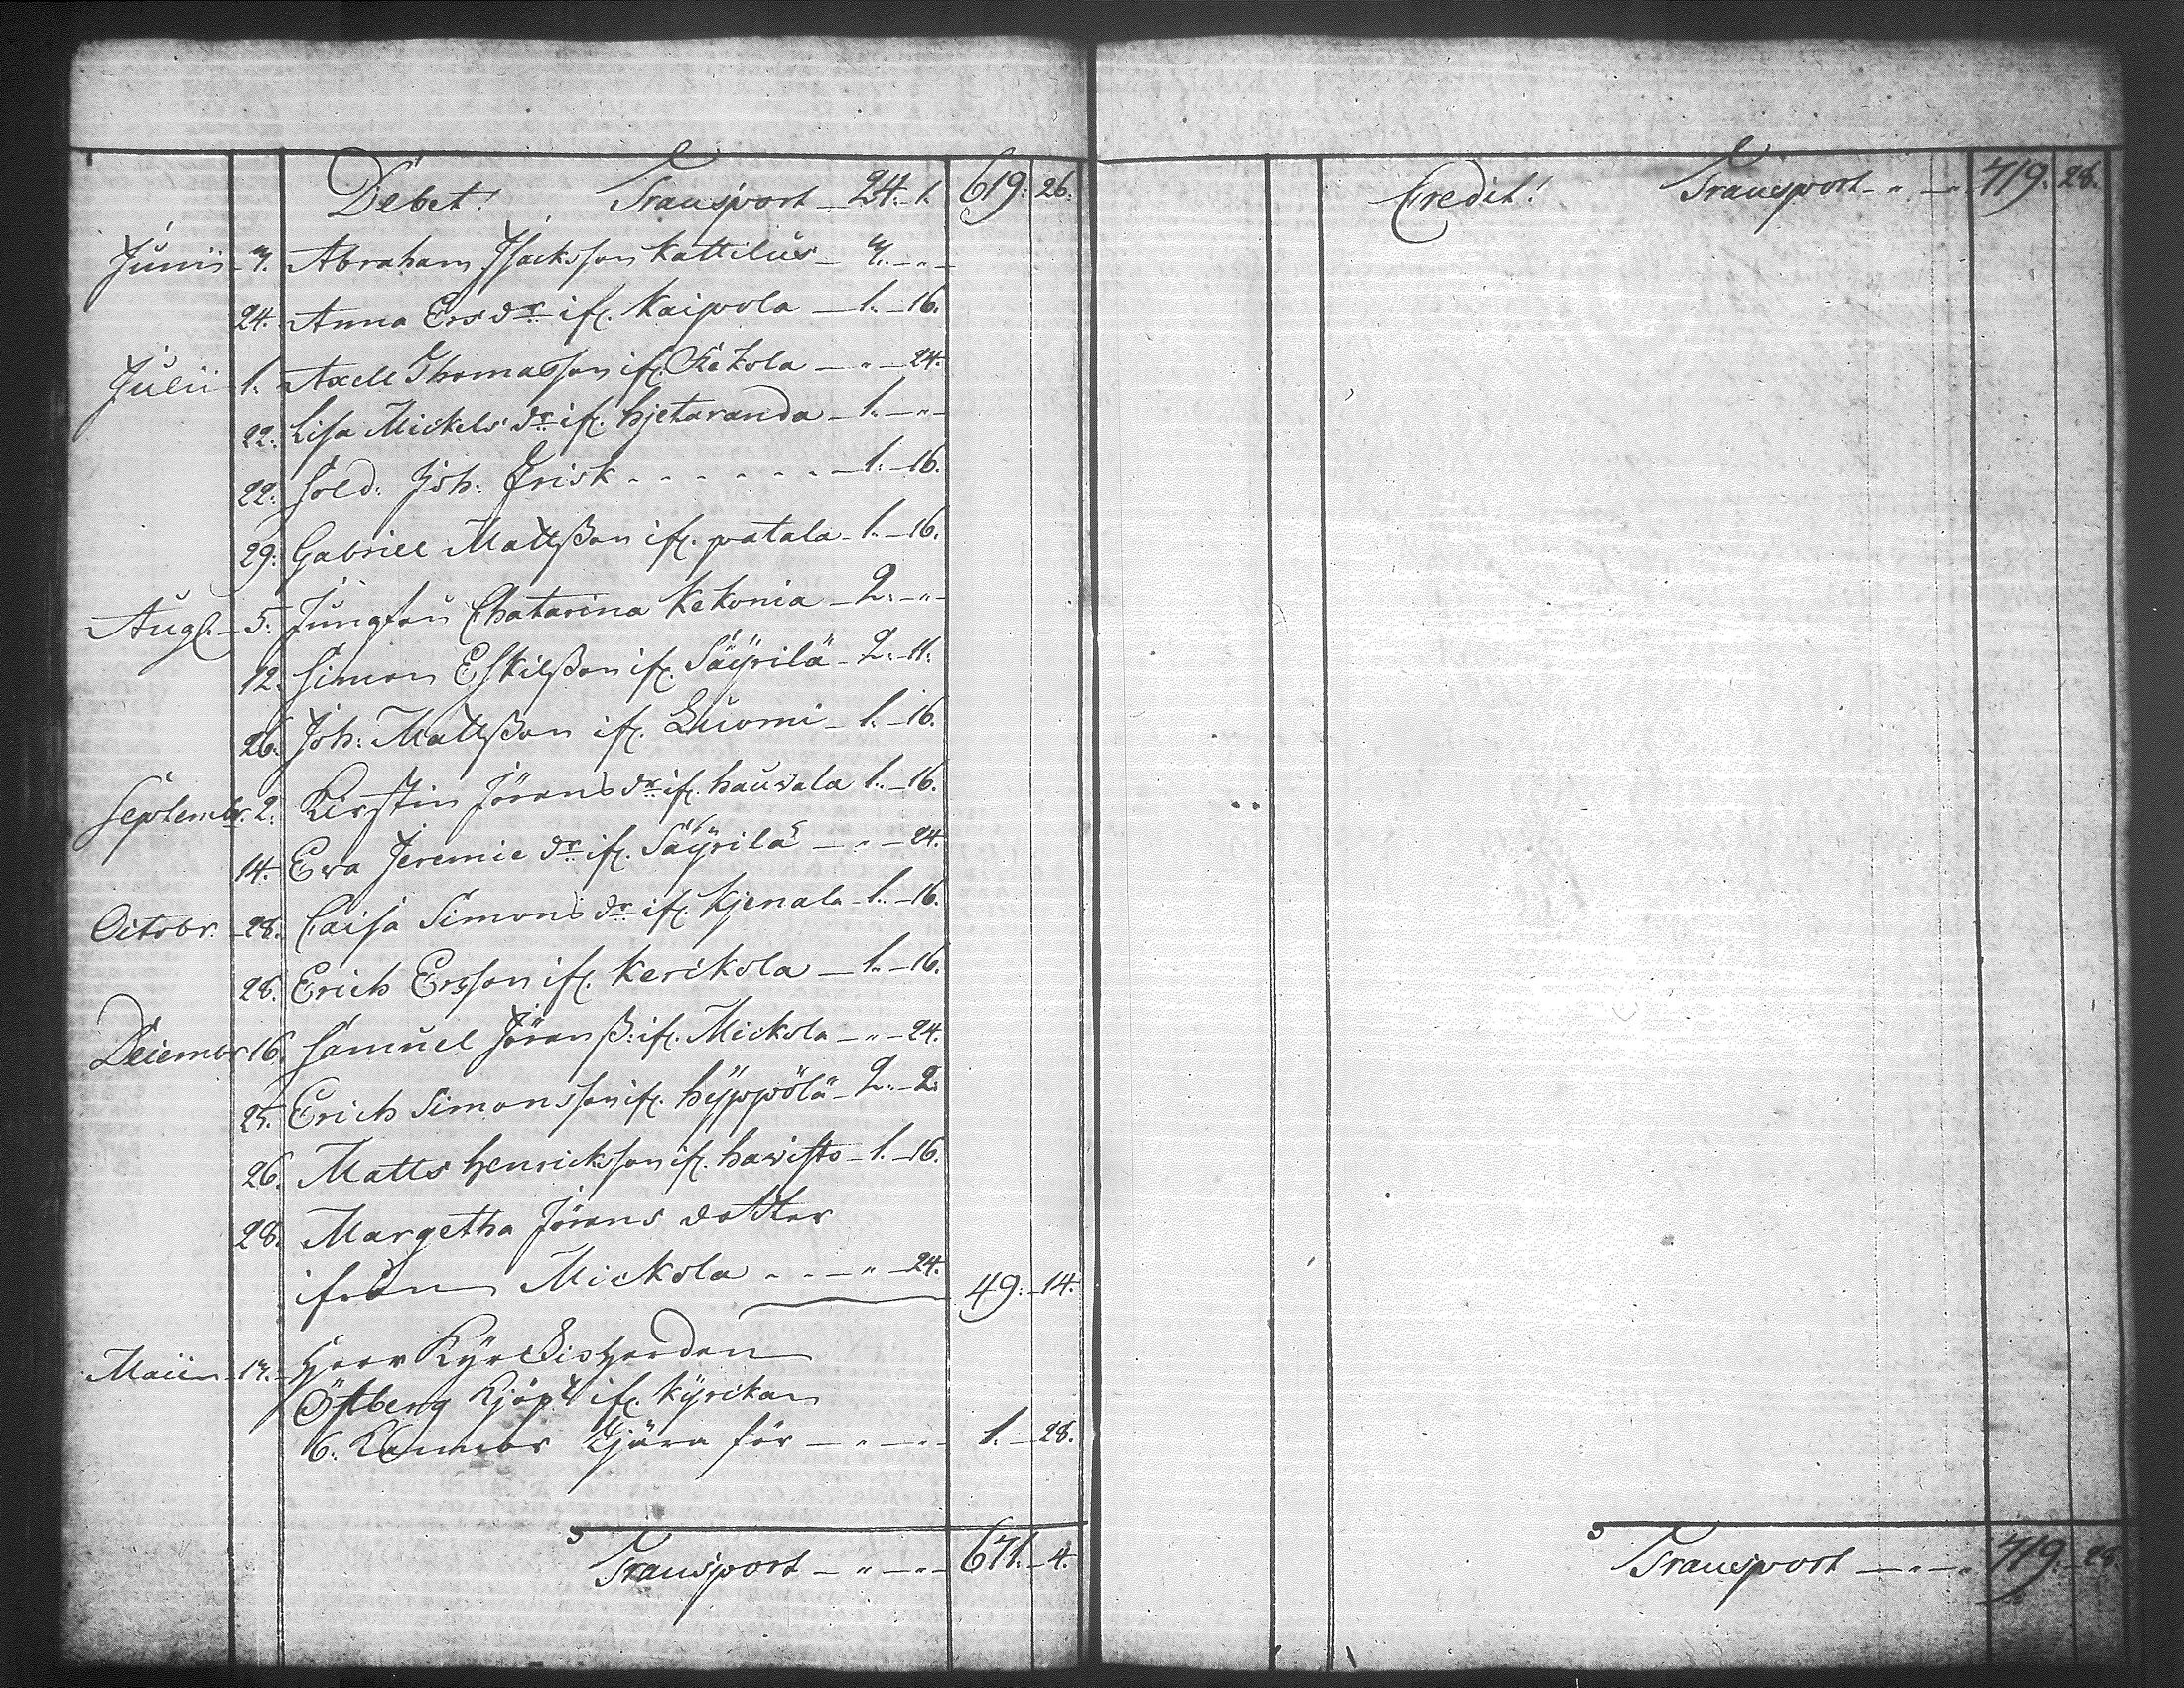 Debet! Transport — 24.. 1. 619: 26.
Junii 7. Abraham Isacksson Kattilus — 7.. — " —
24. Anna Ersdr. ifr. Kaipola — 1.. — 16.
Julii 1. Axell Thomasson ifr. Kekola — " — 24.
22: Lisa Mickelsdr. ifr. hjetaranda — 1.. — " —
22: Sold: Joh: Frisk - - - - - - — 1.. — 16.
29: Gabriel Mattsson ifr. patala — 1.. — 16.
Aug. 5: Jungfru Chatarina Kekonia — 2.. — " —
12. Simon Eskilsson ifr. Säÿrilä — 2.. — 11.
26. Joh: Mattsson ifr. Luomi — 1.. — 16.
Septembr. 2: Kirstin Jöransdr. ifr. hauvala 1.. — 16.
14. Eva Jeremiedr. ifr. Säÿrilä — " — 24.
Octobr. 28. Caisa Simonsdr. ifr. Kjenala — 1.. — 16.
28. Erich Ersson ifr. Kerikola — 1.. — 16.
Decembr 16. Samuel Jöranss: ifr. Mickola — " — 24.
25. Erich Simonsson ifr. hÿppölä — 2.. — 2.
26. Matts Henricksson ifr. havisto — 1. — 16.
28. Margetha Jörans dotter
ifrån Mickola - - — " — 24. 49: — 14.
Maii 17. Herr
Östberg Kjöpt ifr. Kÿrckan
6. Kannor Tjära för — " — " — 1. — 28.
Transport — " — " — 671. — 4.
Credit! Transport — " — " 719. 28.
Transport — " — " 719. — 28.